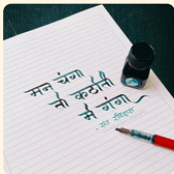 मन चंगा
तो कठौती
में गंगा
- संत रविदास